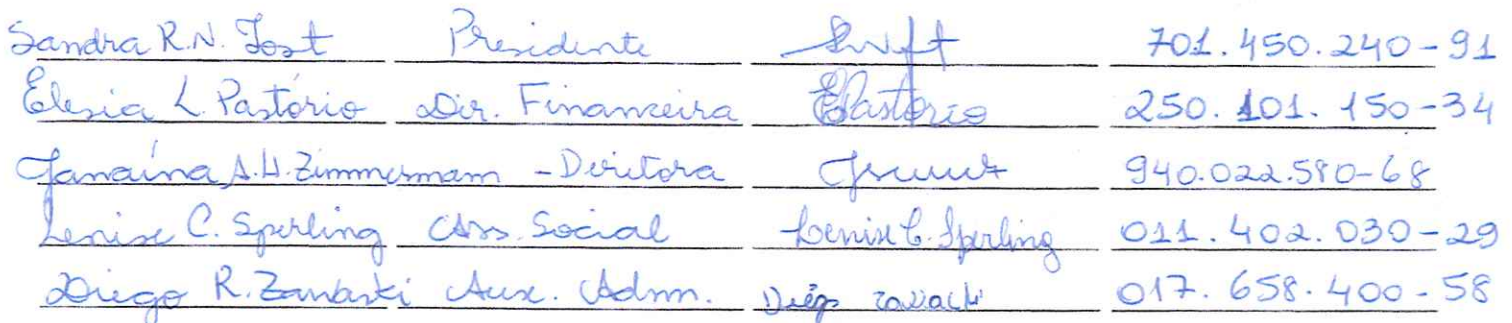 Sandra R.N. Jost Presidente 701.450.240-91
Elesia L. Pastório Dir. Financeira EPastório 250.101.150-34
Janaína A.H. Zimmermam - Diritora 940.022.580-68
Lenise C. Sperling Ass. Social Lenise C. Sperling 011.402.030-29
Diego R. Aux. Admn. Diego 017.658.400-58